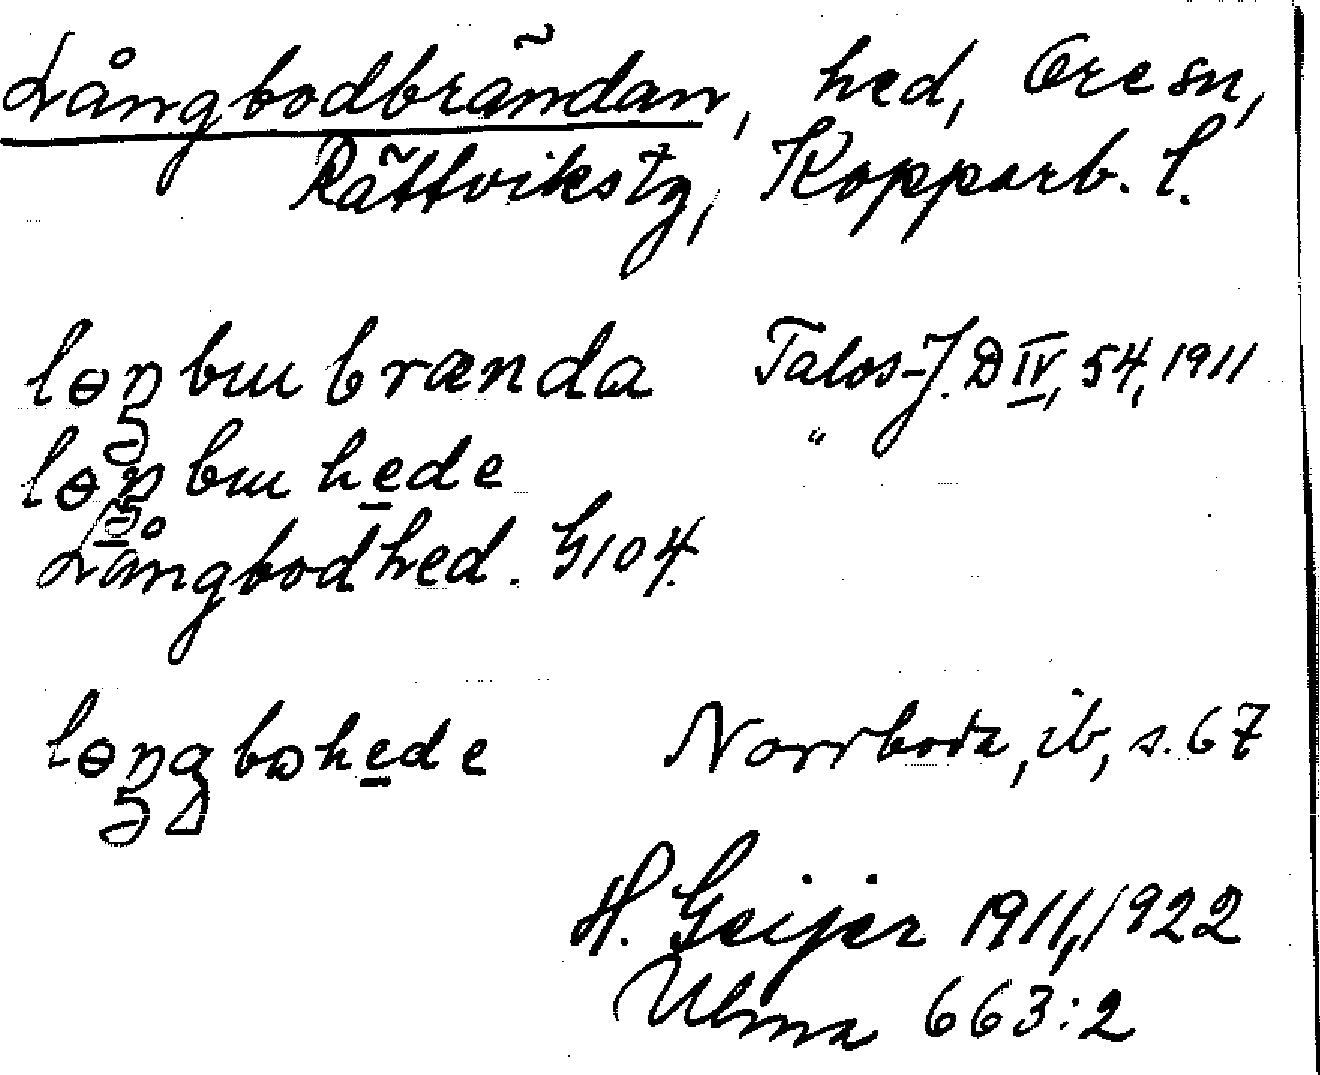 Långbodbrändan, hed, Ore sn,
Rättvikstg, Kopparb. l.
lɵŋbɯbrænda Talos-J. D IV, 54, 1911
lɵŋbɯhede "
Långbodhed. G104.
lɵŋgbɷhede Norrboda, ib, s. 67
H. Geijer 1911, 1922
Ulma 663:2